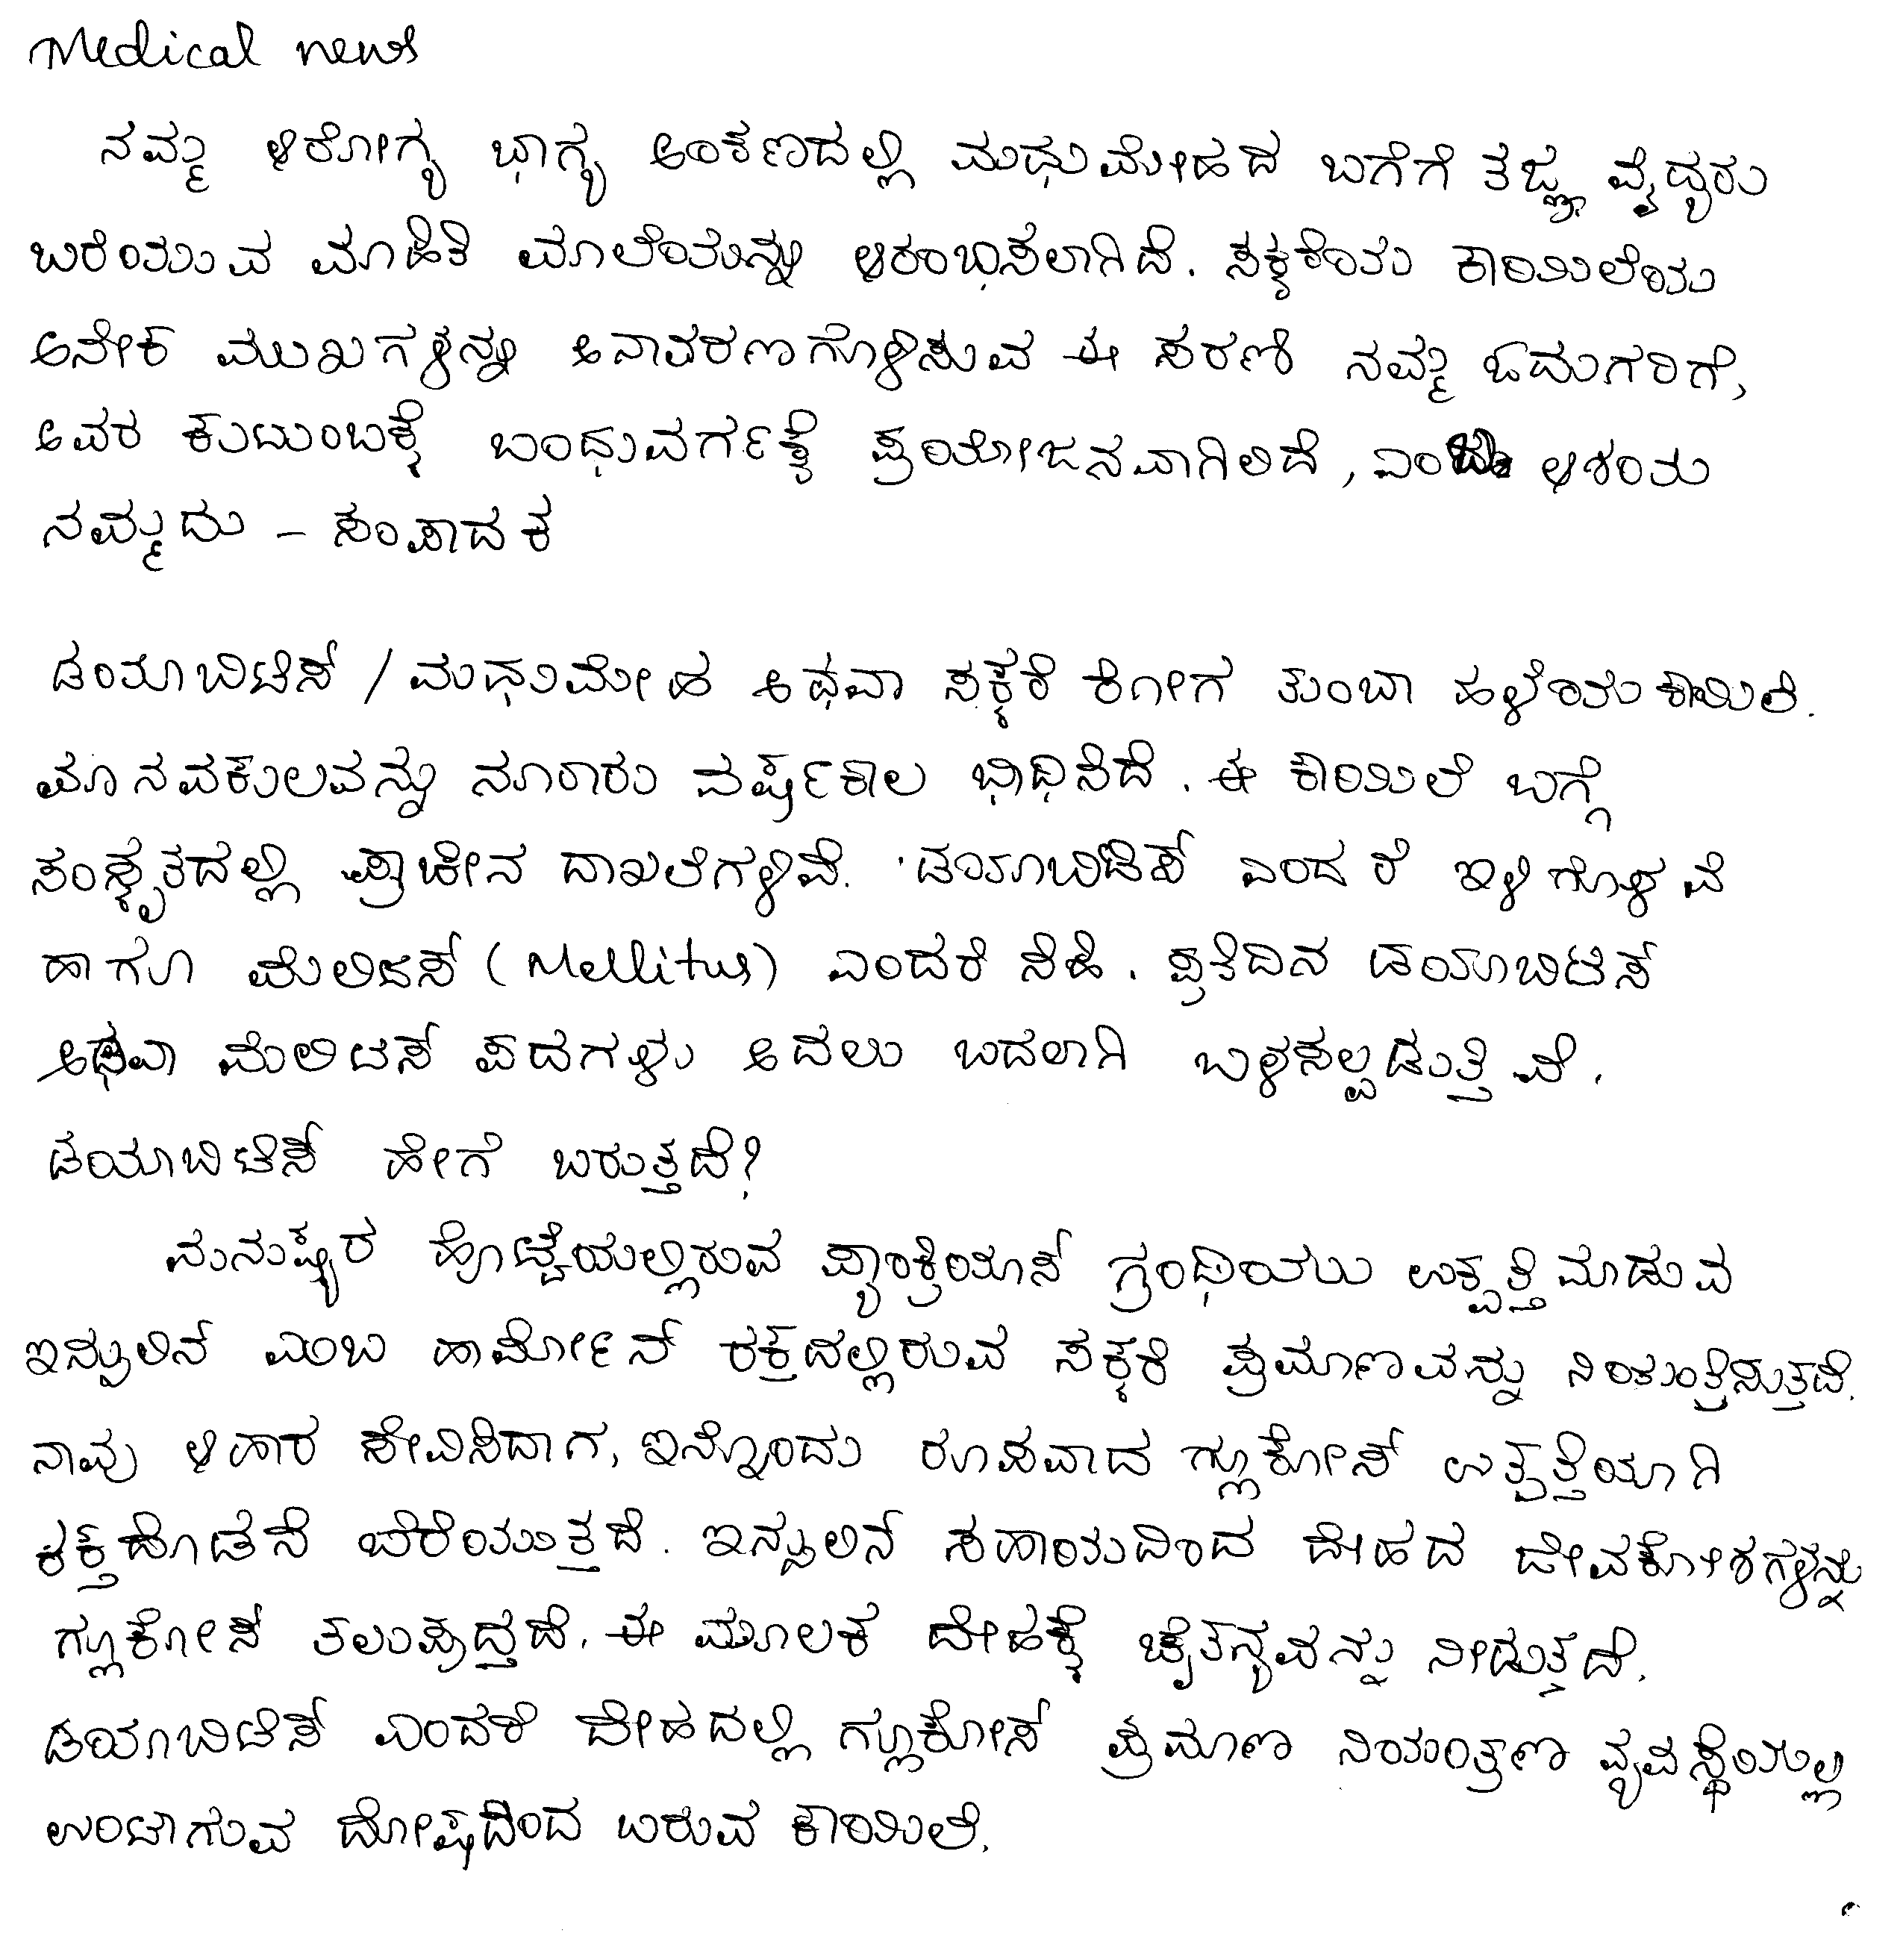 Medical news
ನಮ್ಮ ಆರೋಗ್ಯ ಭಾಗ್ಯ ಅಂಕಣದಲ್ಲಿ ಮಧುಮೇಹದ ಬಗೆಗೆ ತಜ್ಞ ವೈದ್ಯರು
ಬರೆಯುವ ಮಾಹಿತಿ ಮಾಲೆಯನ್ನು ಆರಂಭಿಸಲಾಗಿದೆ. ಸಕ್ಕರೆಯ ಕಾಯಿಲೆಯ
ಅನೇಕ ಮುಖಗಳನ್ನು ಅನಾವರಣಗೊಳಿಸುವ ಈ ಸರಣಿ ನಮ್ಮ ಓದುಗರಿಗೆ,
ಅವರ ಕುಟುಂಬಕ್ಕೆ ಬಂಧುವರ್ಗಕ್ಕೆ ಪ್ರಯೋಜನವಾಗಲಿದೆ, ಎಂಬ ಆಶಯ
ನಮ್ಮದು – ಸಂಪಾದಕ
ಡಯಾಬಿಟಿಸ್ / ಮಧುಮೇಹ ಅಥವಾ ಸಕ್ಕರೆ ರೋಗ ತುಂಬಾ ಹಳೆಯ ಕಾಯಿಲೆ.
ಮಾನವಕುಲವನ್ನು ನೂರಾರು ವರ್ಷಕಾಲ ಭಾಧಿಸಿದೆ. ಈ ಕಾಯಿಲೆ ಬಗ್ಗೆ
ಸಂಸ್ಕೃತದಲ್ಲಿ ಪ್ರಾಚೀನ ದಾಖಲೆಗಳಿವೆ. 'ಡಯಾಬಿಟಿಸ್ ಎಂದರೆ ಇಳಿಗೊಳವೆ
ಹಾಗೂ ಮೆಲಿಟಸ್ (Mellitus) ಎಂದರೆ ಸಿಹಿ. ಪ್ರತಿದಿನ ಡಯಾಬಿಟಿಸ್
ಅಥವಾ ಮೆಲಿಟಸ್ ಪದಗಳು ಅದಲು ಬದಲಾಗಿ ಬಳಸಲ್ಪಡುತ್ತಿವೆ.
ಡಯಾಬಿಟಿಸ್ ಹೇಗೆ ಬರುತ್ತದೆ?
ಮನುಷ್ಯರ ಹೊಟ್ಟೆಯಲ್ಲಿರುವ ಪ್ಯಾಂಕ್ರಿಯಾಸ್ ಗ್ರಂಥಿಯು ಉತ್ಪತ್ತಿ ಮಾಡುವ
ಇನ್ಸುಲಿನ್ ಎಂಬ ಹಾರ್ಮೋನ್ ರಕ್ತದಲ್ಲಿರುವ ಸಕ್ಕರೆ ಪ್ರಮಾಣವನ್ನು ನಿಯಂತ್ರಿಸುತ್ತದೆ.
ನಾವು ಆಹಾರ ಸೇವಿಸಿದಾಗ, ಇನ್ನೊಂದು ರೂಪವಾದ ಗ್ಲುಕೋಸ್ ಉತ್ಪತ್ತಿಯಾಗಿ
ರಕ್ತದೊಡನೆ ಬೆರೆಯುತ್ತದೆ. ಇನ್ಸುಲಿನ್ ಸಹಾಯದಿಂದ ದೇಹದ ಜೀವಕೋಶಗಳನ್ನು
ಗ್ಲುಕೋಸ್ ತಲುಪುದ್ತದೆ. ಈ ಮೂಲಕ ದೇಹಕ್ಕೆ ಚೈತನ್ಯವನ್ನು ನೀಡುತ್ತದೆ.
ಡಯಾಬಿಟಿಸ್ ಎಂದರೆ ದೇಹದಲ್ಲಿ ಗ್ಲುಕೋಸ್ ಪ್ರಮಾಣ ನಿಯಂತ್ರಣ ವ್ಯವಸ್ಥೆಯಲ್ಲಿ
ಉಂಟಾಗುವ ದೋಷದಿಂದ ಬರುವ ಕಾಯಿಲೆ.